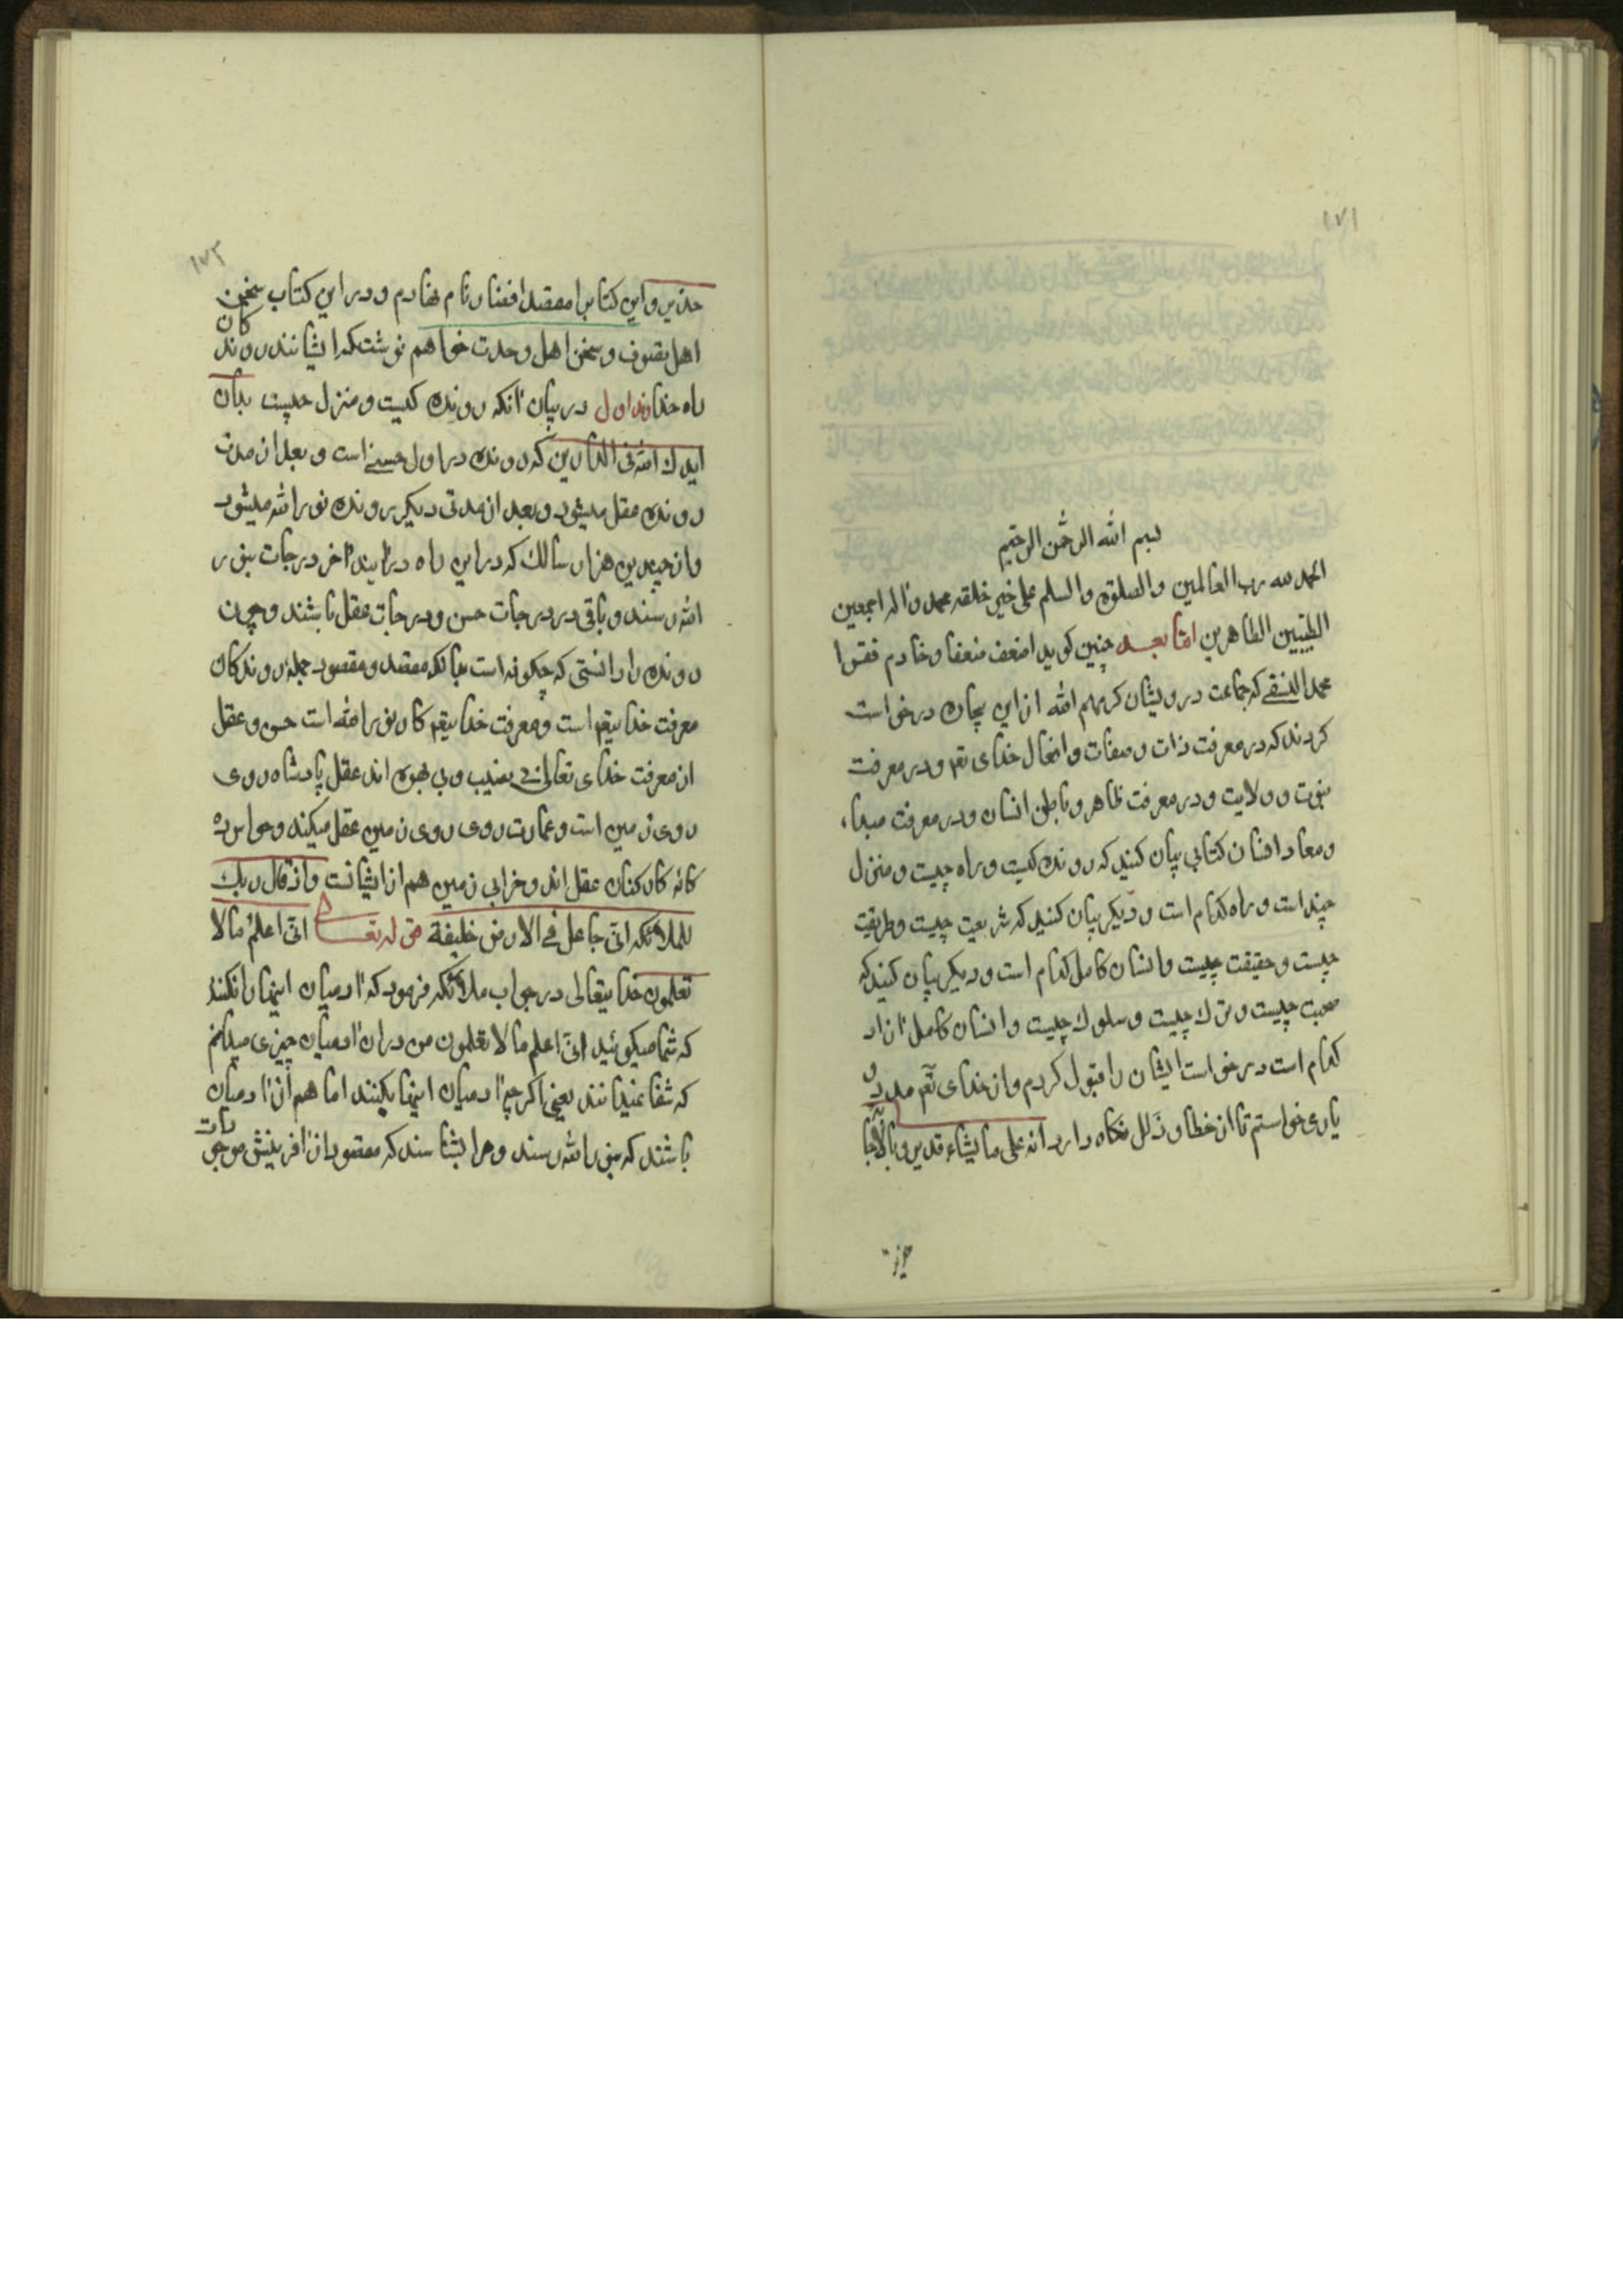 ۱۷۱
بسم الله الرحمن الرحیم
الحمد لله رب العالمین والصلوة والسلم علی خیر خلقه محمد و اله اجمعین
الطیبین الطاهرین اما بعد چنین کوید اضعف ضعفا و خادم فقرا
محمد النسفی که جماعت درویشان کرمهم الله از این بیچاره درخواست
کردند که در معرفت ذات و صفات و افعال خدای تعه و در معرفت
نبوت و ولایت و در معرفت ظاهر و باطن انسان و در معرفت مبداء
و معاد انسان کتابی بیان کنید که رونده کیست و راه چیست و منزل
چند است و راه کدام است و دیکر بیان کنید که شریعت چیست و طریقت
چیست و حقیقت چیست و انسان کامل کدام است و دیکر بیان کنید که
صحبت چیست و ترك چیست و سلوك چیست و انسان کامل ازاد
کدام است درخواست ایشان را قبول کردم و از خدای تعه مدد و
یاری خواستم تا از خطا و زلل نکاه دارد انه علی ما یشاء قدیر و بالاجابة
جدیر
۱۷۲
جدیر و این کتابرا مقصد اقصا نام نهادم و در این کتاب سخن
اهل تصوف و سخن اهل وحدت خواهم نوشت که ایشانند روندکان
راه خداوند اول در بیان انکه رونده کیست و منزل چیست بدان
ایدك الله فی الدارین که رونده در اول حس است و بعد از مدت
رونده عقل میشود و بعد از مدتی دیکر رونده نور الله میشود
و از چندین هزار سالك که در این راه درایند اخر درجات بنور
الله رسند و باقی در درجات حس و درجات عقل باشند و چون
رونده را دانستی که چکونه است بدانکه مقصد و مقصود جمله روندکان
معرفت خدایتعه است و معرفت خدایتعه کار نور الله است حس و عقل
از معرفت خدای تعالی بی نصیب و بی بهره اند عقل پادشاه روی
روی زمین است و عمارت روی روی زمین عقل میکند و حواس ده
کانه کارکنان عقل اند و خرابی زمین هم از ایشانست و اذ قال ربك
للملائکه انی جاعل فی الارض خلیفة قوله تعا انی اعلم ما لا
تعلمون خدایتعالی در جواب ملائکه فرمود که ادمیان اینها را نکنند
که شما میکوئید انی اعلم ما لا تعلمون من در ان ادمیان چیزی میدانم
که شما نمیدانند یعنی اکرچه ادمیان اینها بکنند اما هم از ادمیان
باشند که بنور الله رسند و مرا بشناسند که مقصود از افرینش موجودات